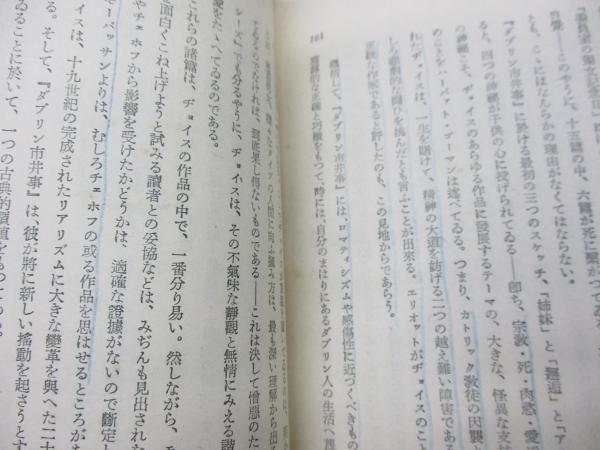 『委員室の蔦の祭日』と
自覺――このうちに、十五篇の中、六篇が死に繫がつてゐ
とも、ここになんらかの理由がなくてはならない。
『ダブリン市井事』に於ける最初の三つのスケッチ、「姉妹」と「邂逅」と「ア
と、四つの神秘が子供の心に投げられてゐる――卽ち、宗敎・死・肉感・愛
神秘こそ、ヂョイスのあらゆる作品に發展するテーマの、大きな、怪異な支柱
のことをハーバート・ゴーマンは述べてゐる。つまり、カトリック敎徒の因襲と
れたヂョイスは、一生を賭けて、精神の大道を妨げる二つの越え難い障害である
し悲劇的な鬪ひを挑んだとも言ふことが出來る。エリオットがヂョイスのこと
正統な作家であると評したのも、この見地からであらう。
101
槪して、『ダブリン市井事』には、ロマンティシズムや感傷性に近づくべきもの
寫實的な正確と巧緻をもつて、時には、自分のまはりにあるダブリン人の生活へ
タイプの人間に向ふ憐み方は、最も深い理解から出
てゐるものでなければ、到底果し得ないものである――これは決して憎惡のた
シーズ』でも分るやうに、ヂョイスは、その不氣味な靜觀と無情にみえる諧
をたたへてゐるのである。
これらの諸篇は、ヂョイスの作品の中で、一番分り易い。然しながら、
を面白くこね上げようと試みる讀者との妥協などは、みぢんも見出されな
やチェホフから影響を受けたかどうかは、適確な證據がないので斷定し
モーパッサンよりは、むしろチェホフの或る作品を思はせるところがあ
る。そして、『ダブリン市井事』は、彼が將に新しい搖動を起さうとす
イスは、十九世紀の完成されたリアリズムに大きな變革を與へた二十
ゐることに於いて、一つの古典的價値をもつてゐる。